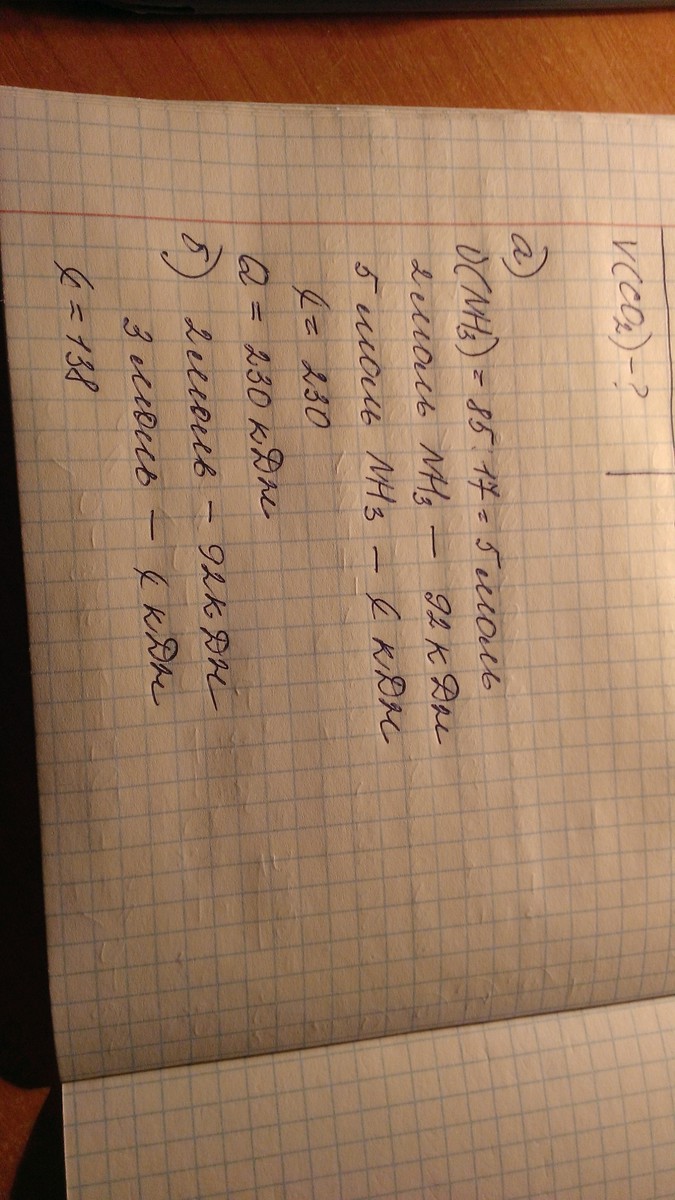 V(CO2)-?
а)
ν(NH3) = 85:17 = 5 моль
2 моль NH3 — 92 кДж
5 моль NH3 — x кДж
x = 230
Q = 230 кДж
б) 2 моль — 92 кДж
3 моль — x кДж
x = 138